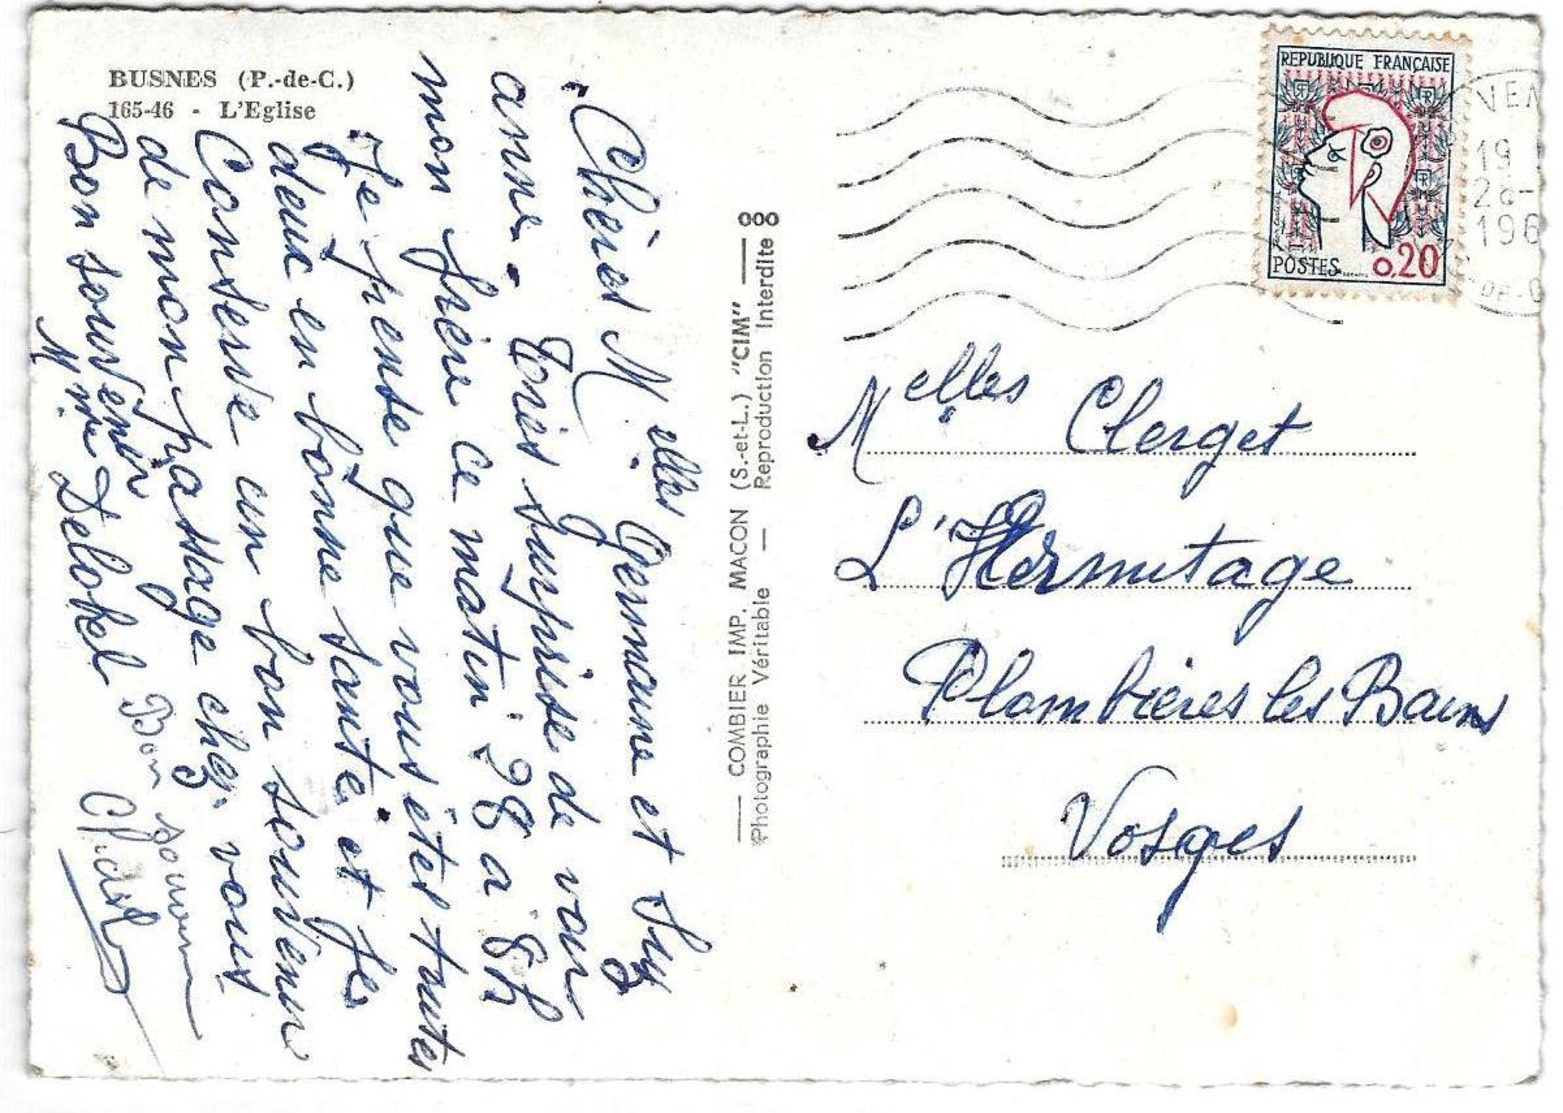 BUSNES (P.-de-C.)
165-46 - L'Eglise
Chères Melles Germaine et Suz
anne. Très surprise de voir
mon frère ce matin 28 a 8h
Je pense que vous êtes toutes
deux en bonne santé et je
Conserve un bon souvenir
de mon passage chez vous
Bon souvenir
Mme Delobel
Bon souvenir
COMBIER IMP. MACON (S.-et-L.) "CIM"
Photographie Véritable — Reproduction Interdite
REPUBLIQUE FRANÇAISE
POSTES 0,20
VEN
19
28-
196
Melles Clerget
L'Hermitage
Plombières les Bains
Vosges